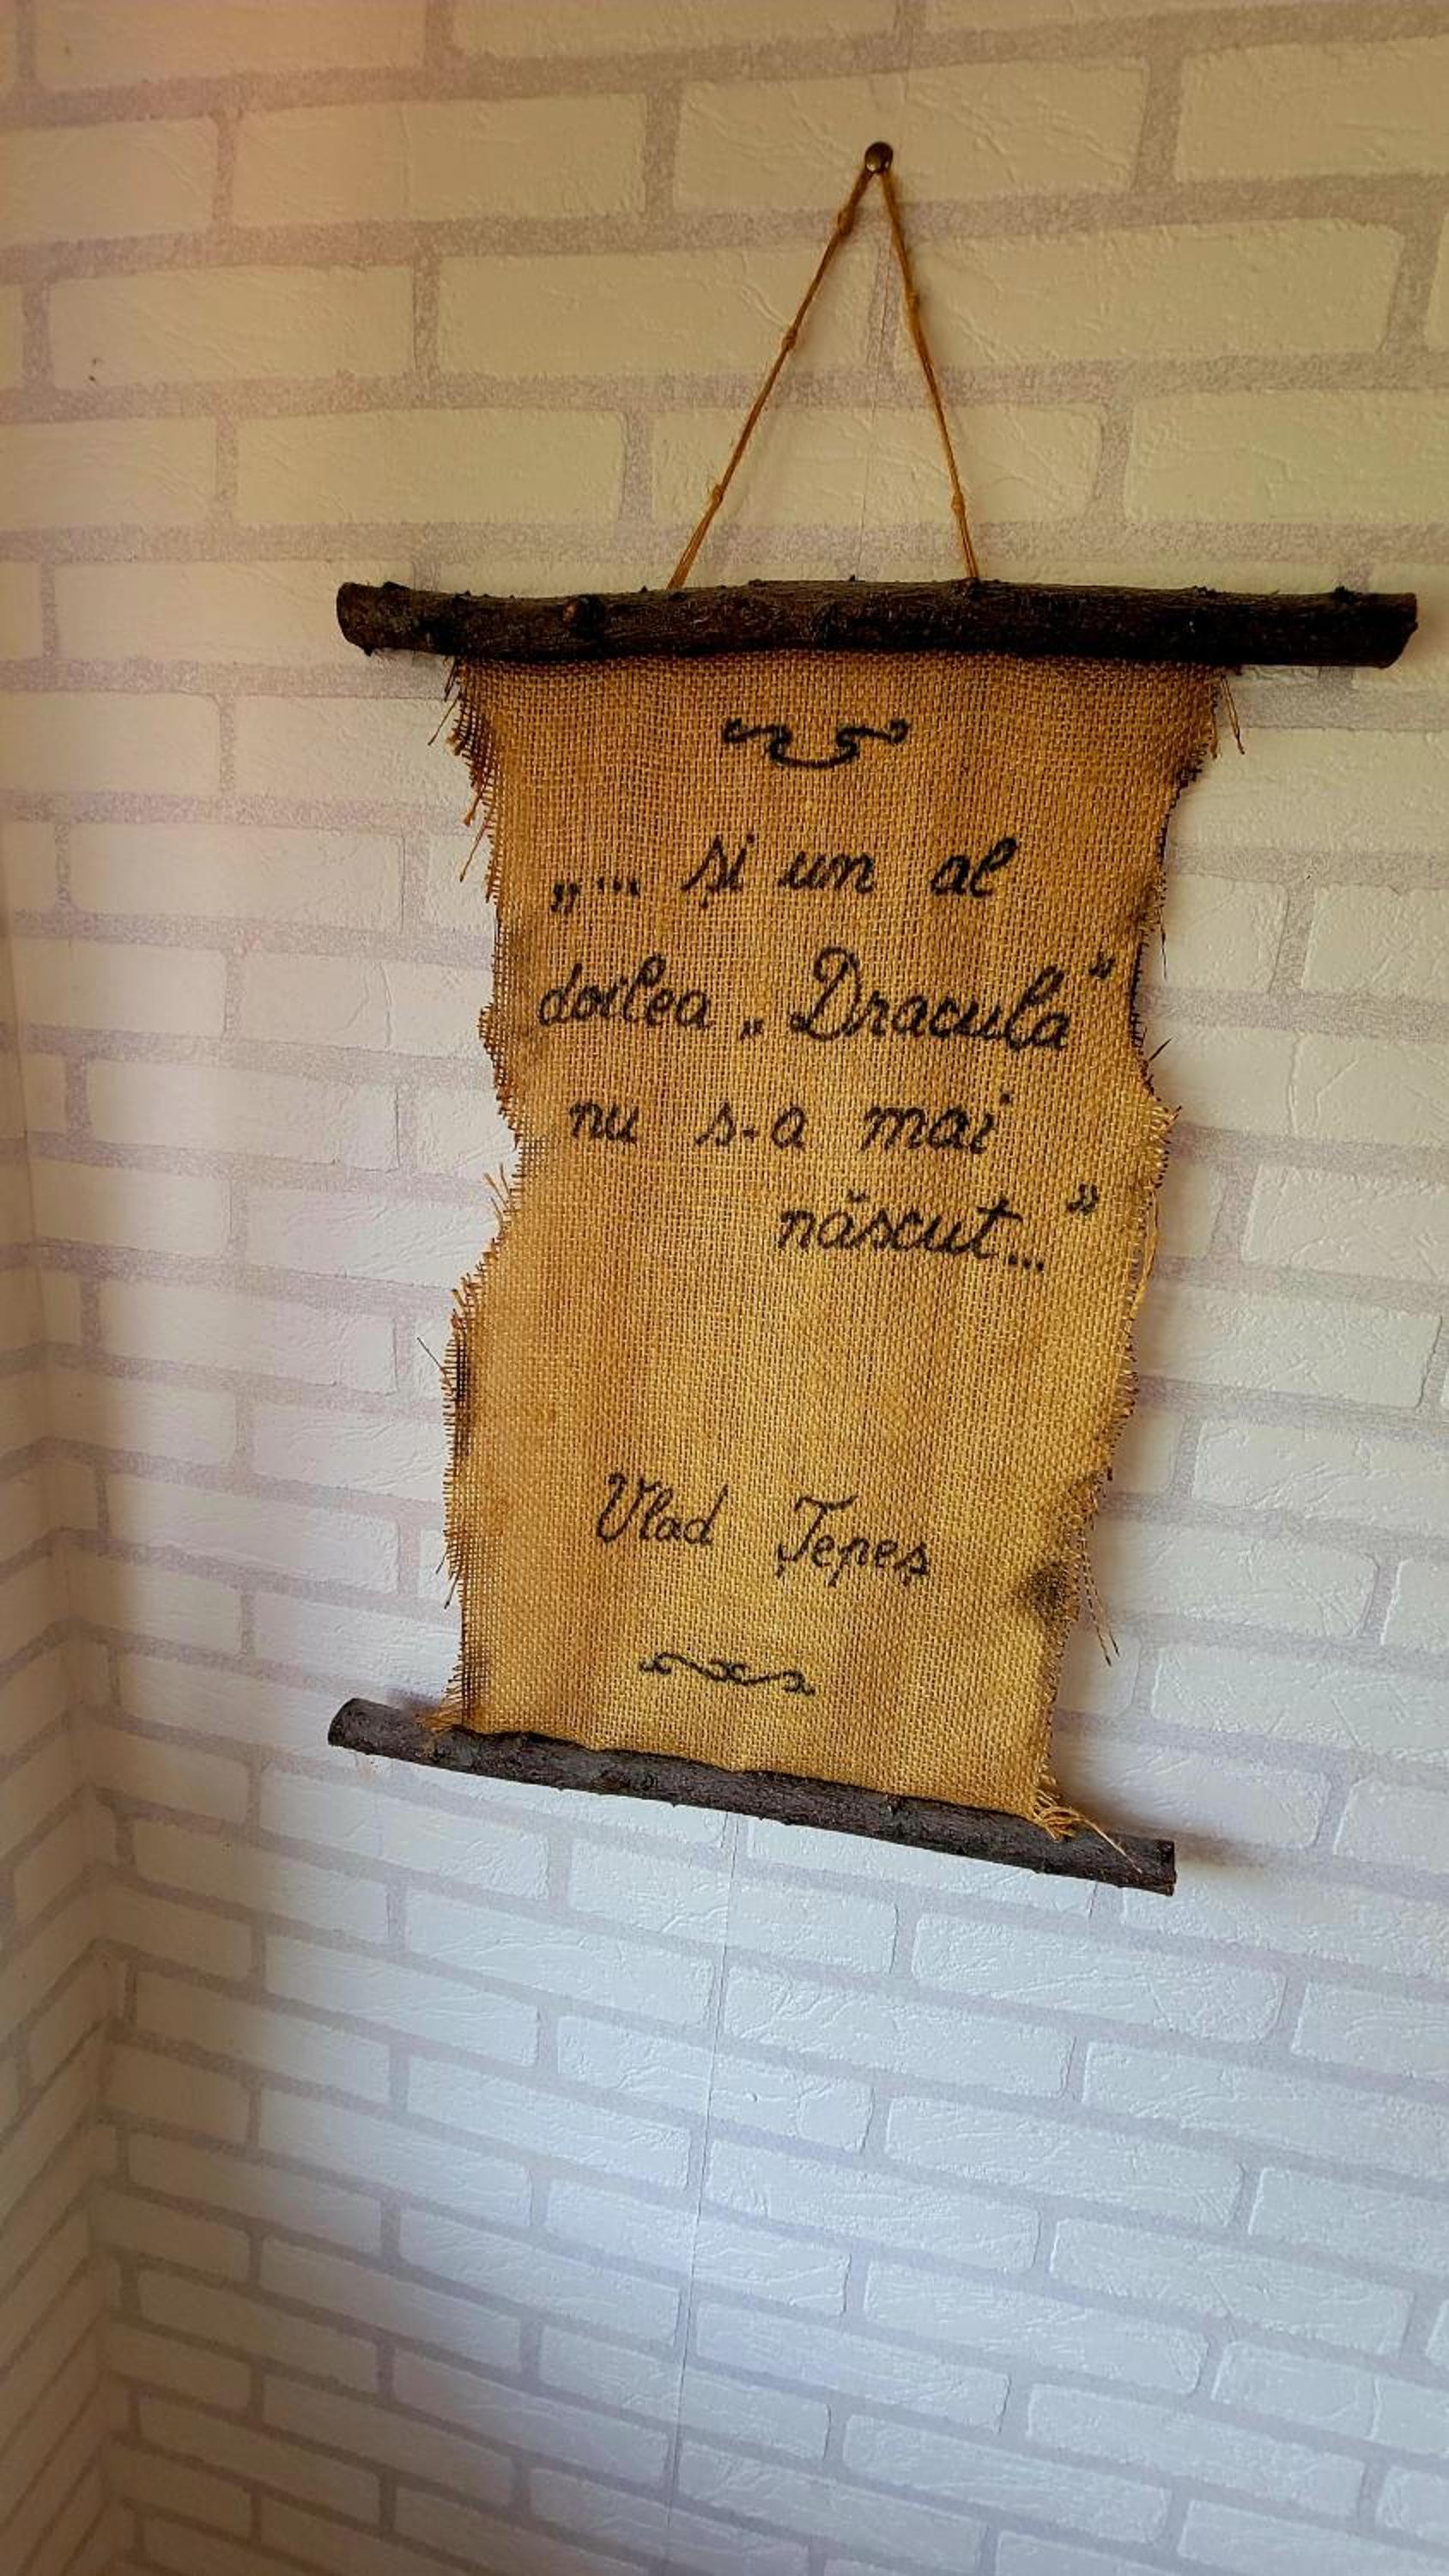 „... și un al
doilea „Dracula”
nu s-a mai
născut...”
Vlad Țepeș